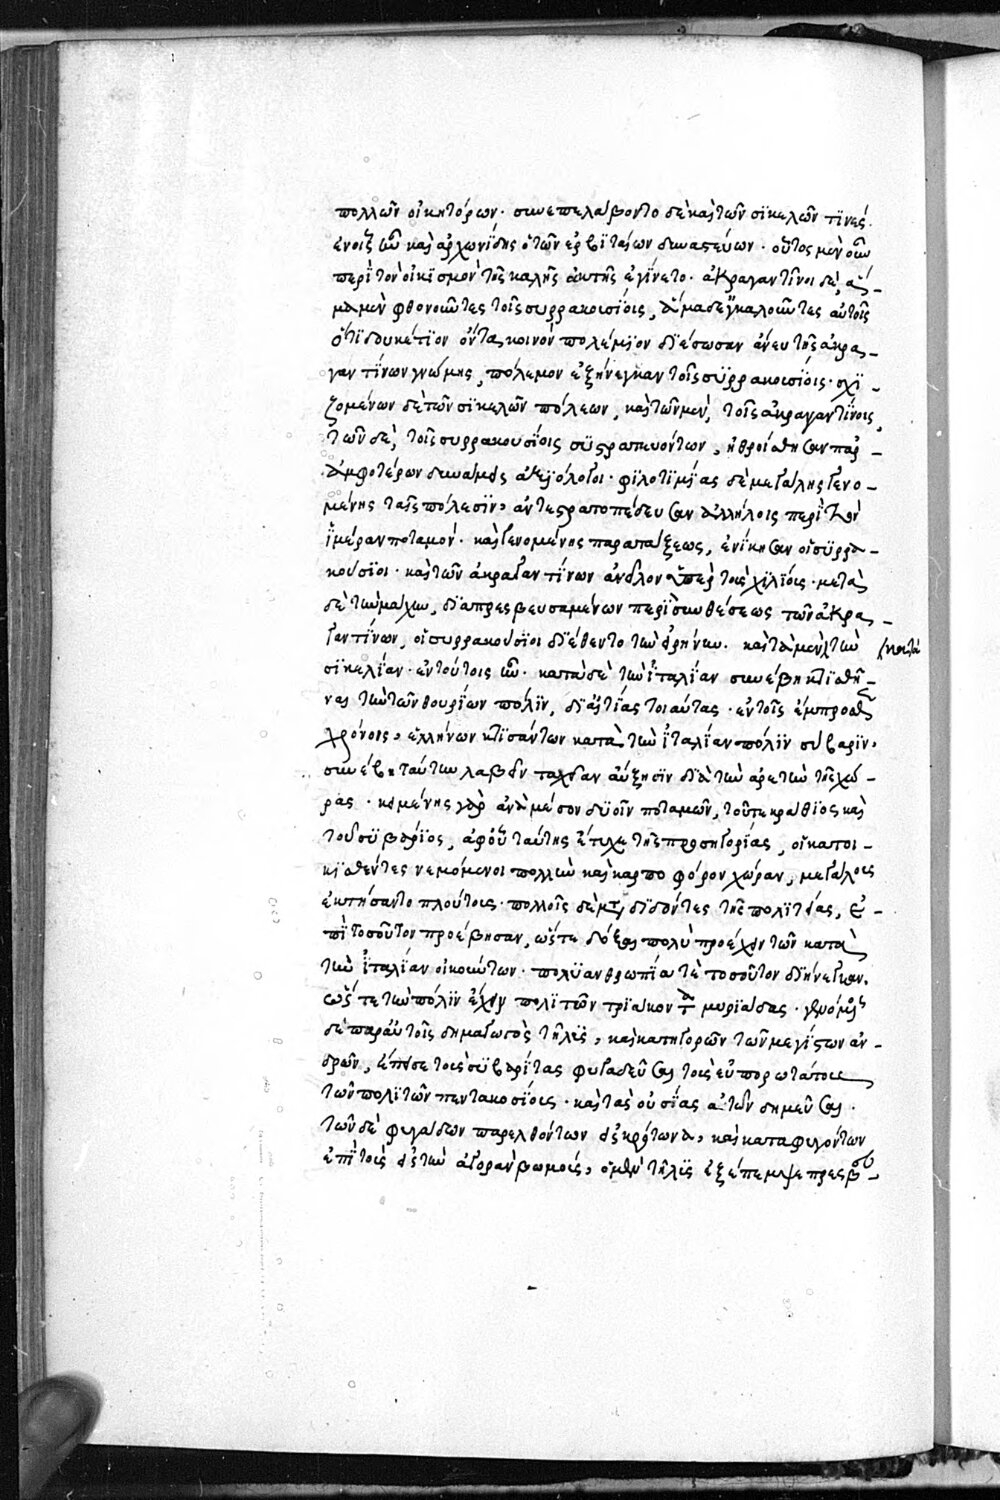 πολλῶν οἰκητόρων· συνεπελάβοντο δὲ καὶ τῶν σϊκελῶν τϊνές.
ἐν οἷς ἦν καὶ ἀρχωνίδης ὁ τῶν ἐρβϊταίων δυναστεύων· οὗτος μὲν οὖν
περὶ τὸν οἰκϊσμὸν τῆς καλῆς ἀκτῆς ἐγίνετο· ἀκραγαντῖνοι δὲ, ἅ-
μα μὲν φθονοῦντες τοῖς συρρακουσίοις, ἅμα δ' ἐγκαλοῦντες αὐτοῖς
ὅτϊ δουκέτϊον ὄντα κοινὸν πολέμϊον δϊέσωσαν ἄνευ τῆς ἀκρα-
γαντίνων γνώμης, πόλεμον ἐξήνεγκαν τοῖς συρρακουσίοις· σχϊ-
ζομένων δὲ τῶν σϊκελῶν πόλεων, καὶ τῶν μὲν, τοῖς ἀκραγαντίνοις,
τῶν δὲ, τοῖς συρρακουσίοις συστρατευόντων, ἠθροίσθησαν παρ'
ἀμφοτέρων δυνάμεις ἀξϊόλογοι· φϊλοτϊμίας δὲ μεγάλης γενο-
μένης ταῖς πόλεσϊν, ἀντεστρατοπέδευσαν ἀλλήλοις περὶ τὸν
ἱμέραν ποταμόν· καὶ γενομένης παρατάξεως, ἐνίκησαν οἱ συρρα-
κούσϊοι· καὶ τῶν ἀκραγαντίνων ἀνεῖλον ὑπὲρ τοὺς χϊλίους· μετὰ
δὲ τὴν μάχην, δϊαπρεσβευσαμένων περὶ συνθέσεως τῶν ἀκρα-
γαντίνων, οἱ συρρακούσϊοι δϊέθεντο τὴν εἰρήνην· καὶ τὰ μὲν κατὰ τὴν
σϊκελίαν· ἐν τούτοις ἦν· κατὰ δὲ τὴν ἰταλίαν συνέβη κτϊσθῆ-
ναι τὴν τῶν θουρίων πόλϊν, δϊ' αἰτίας τοιαύτας· ἐν τοῖς ἔμπροσθεν
χρόνοις, ἑλλήνων κτϊσάντων κατὰ τὴν ἰταλίαν πόλϊν σύβαρϊν,
συνέβη ταύτην λαβεῖν ταχεῖαν αὔξησϊν δϊὰ τὴν ἀρετὴν τῆς χώ-
ρας· κειμένης γὰρ ἀνὰ μέσον δυοῖν ποταμῶν, τοῦ τε κράθϊος καὶ
τοῦ συβάρϊος, ἀφ' οὗ ταύτης ἔτυχε τῆς προσηγορίας, οἱ κατοι-
κϊσθέντες νεμόμενοι πολλὴν καὶ καρποφόρον χώραν, μεγάλους
ἐκτήσαντο πλούτους· πολλοῖς δὲ μεταδϊδόντες τῆς πολϊτείας, ἐ-
πὶ τοσοῦτον προέβησαν, ὥστε δόξαι πολὺ προέχειν τῶν κατὰ
τὴν ἰταλίαν οἰκούντων· πολϋανθρωπίᾳ τὲ τοσοῦτον δϊήνεγκαν,
ὥστε τὴν πόλϊν ἔχειν πολϊτῶν τρϊάκοντα μυρϊάδας· γενόμενος
δὲ παρ' αὐτοῖς δημαγωγὸς τῆλϊς, καὶ κατηγορῶν τῶν μεγίστων ἀν-
δρῶν, ἔπεισε τοὺς συβαρίτας φυγαδεῦσαι τοὺς εὐπορωτάτους
τῶν πολϊτῶν πεντακοσίους· καὶ τὰς οὐσίας αὐτῶν δημεῦσαι·
τῶν δὲ φυγάδων παρελθόντων εἰς κρότωνα, καὶ καταφυγόντων
ἐπὶ τοὺς εἰς τὴν ἀγορὰν βωμούς, ὁ μὲν τῆλϊς ἐξέπεμψε πρεσβευ-